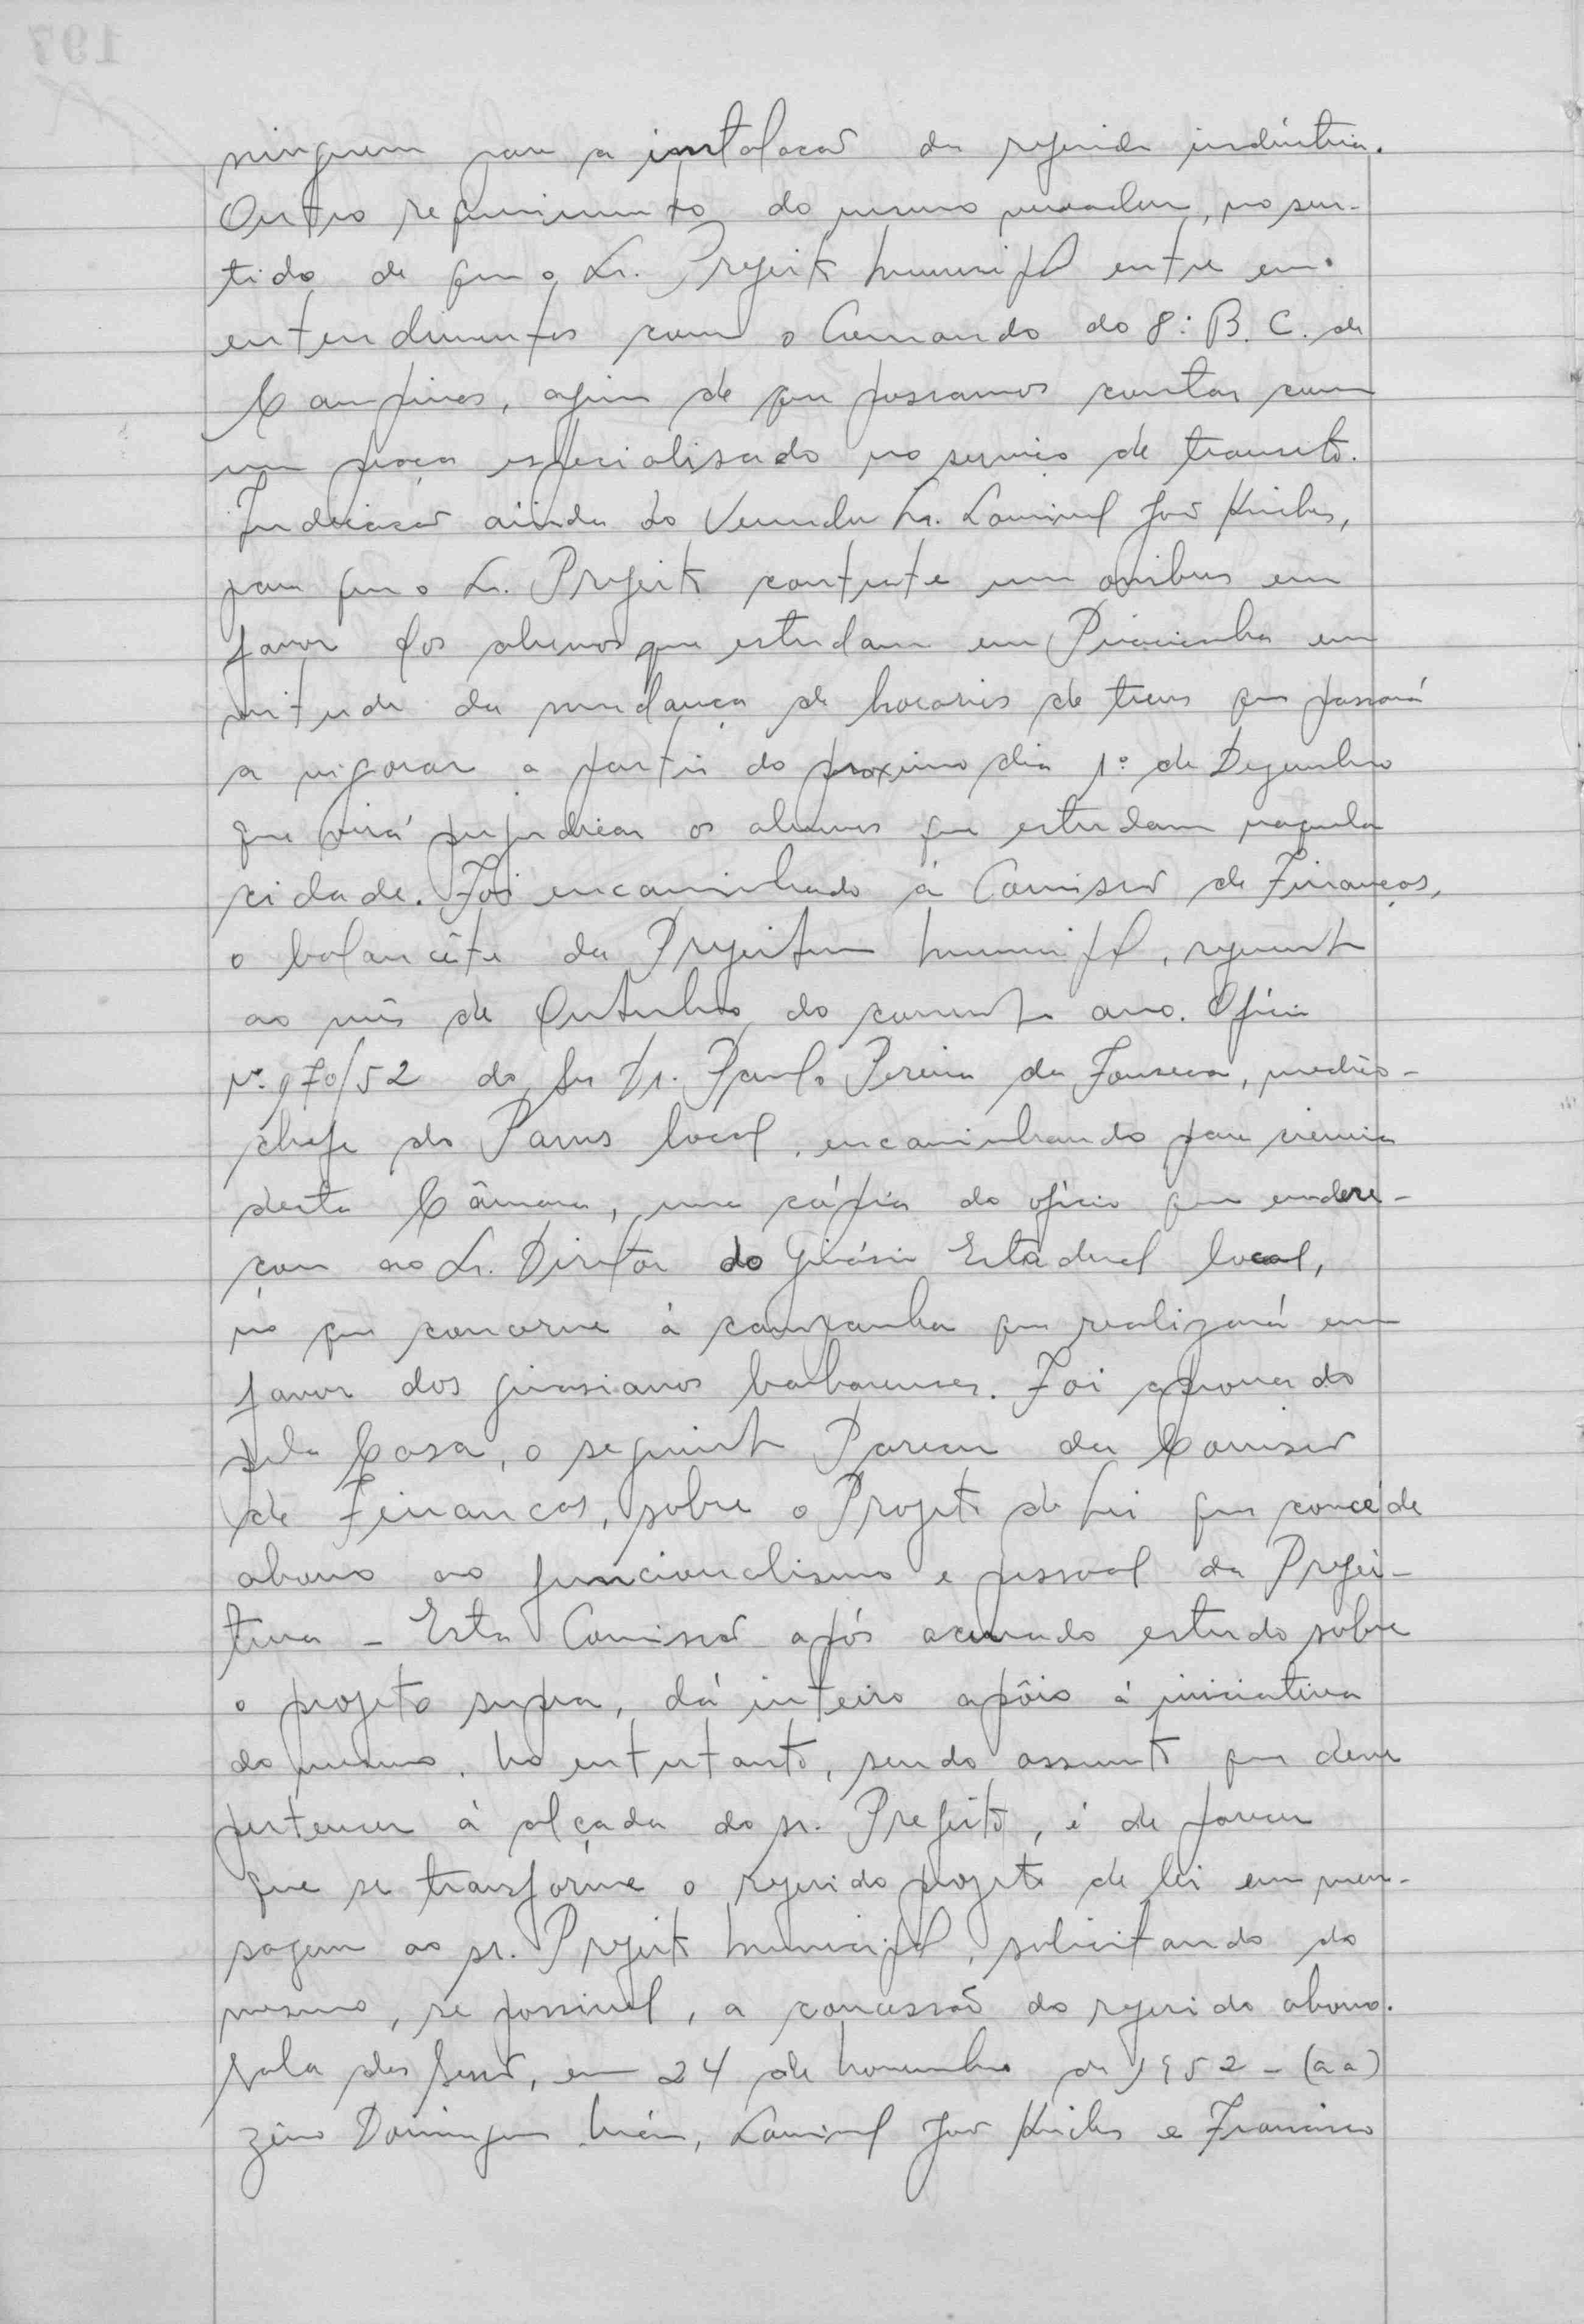 ninguem para a instalacão da referida indústria.
Outro requerimento do mesmo vereador, no sen-
tido de que o Sr. Prefeito Municipal entre em
entendimentos com o Comando do 8º B. C. de
Campinas, afim de que possamos contar com
um praça especialisado no serviço de transito.
Indicacão ainda do Vereador Sr. Lourival José
para que o Sr. Prefeito contrate um onibus em
favor dos alunos que estudam em Piracicaba em
virtude da mudança de horarios de trens que passará
a vigorar a partir do proximo dia 1º de Dezembro
que virá prejudicar os alunos que estudam naquela
cidade. Foi encaminhado á Comissão de Finanças,
o balancête da Prefeitura Municipal, referente
ao mês de Outubro do corrente ano. Oficio
nº 970/52 do Sr Dr. Paulo Pereira da Fonseca, médico-
chefe do Pams local, encaminhando para ciencia
desta Câmara, uma cópia do oficio que endere-
çou ao Sr. Diretor do Ginásio Estadual local,
no que concerne á campanha que realizará em
favor dos ginasianos barbarenses. Foi aprovado
pela Casa, o seguinte Parecer da Comissão
de Financas, sobre o Projeto de Lei que concéde
abono ao funcionalismo e pessoal da Prefei-
tura - Esta Comissão após acurado estudo sobre
o projeto supra, dá inteiro apôio á iniciativa
do mesmo. No entretanto, sendo assunto que deve
pertencer á alçada do sr. Prefeito, é de parecer
que se transforme o referido projeto de lei em men-
sagem ao sr. Prefeito Municipal, solicitando do
mesmo, se possivel, a concessão do referido abono.
Sala das Sessões, em 24 de Novembro de 1952 - (aa)
Zeno Domingues Maia, Lourival José e Francisco